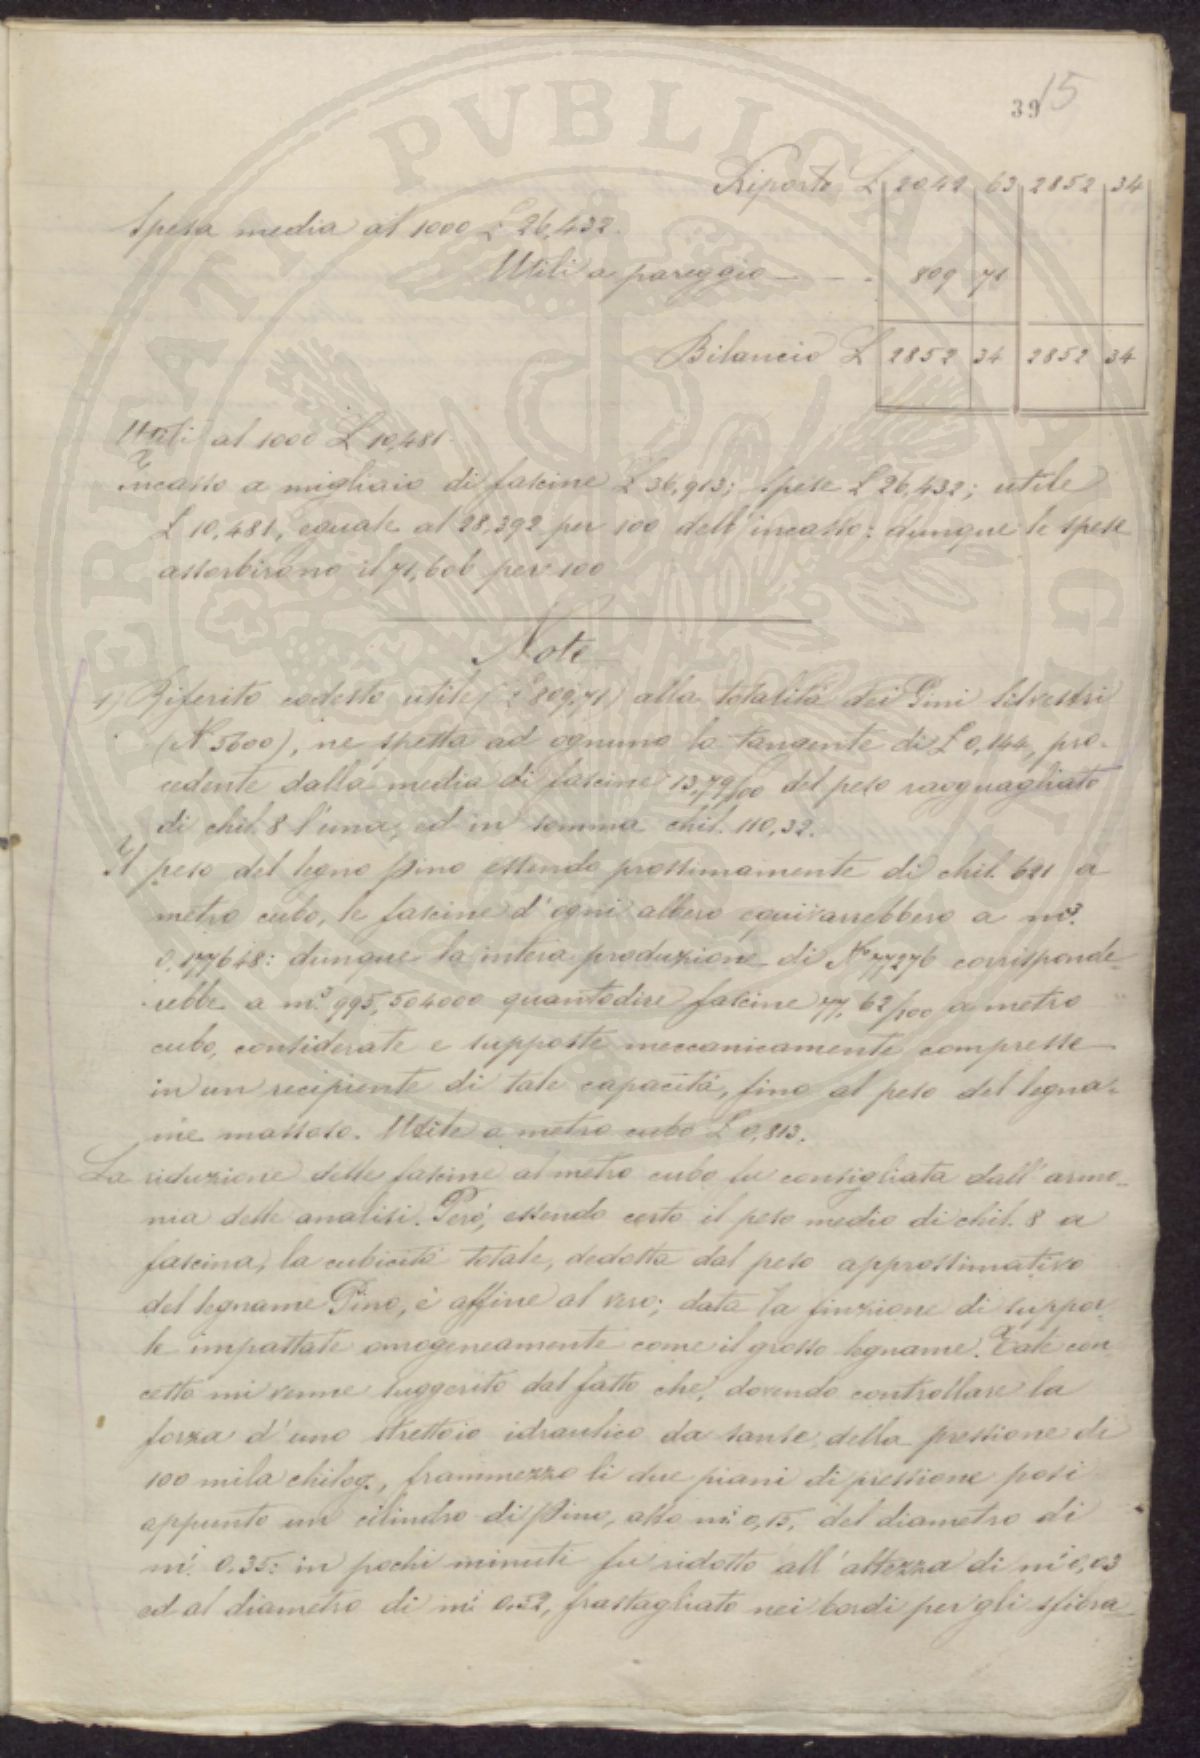 39 15
Riporto L 2042 63 2852 34
Spesa media al 1000 £ 26,432.
Utili a pareggio - - - 809 71
Bilancio L 2852 34 2852 34
Utili al 1000 £ 10,481.
Incasso a migliaio di fascine £ 36,913; spese £ 26,432; utile
£ 10,481, eguale al 28,392 per 100 dell'incasso: dunque le spese
assorbirono il 71,606 per 100
Note
1) Riferito codesto utile (£ 809,71) alla totalità dei Pini silvestri
(N° 5600), ne spetta ad ognuno la tangente di £ 0,144, pro-
cedente dalla media di fascine 13,79/00 del peso ragguagliato
di chil. 8 l'una, ed in somma chil. 110,32.
Il peso del legno pino essendo prossimamente di chil. 621 a
metro cubo, le fascine d'ogni albero equivarrebbero a m³.
0,177648: dunque la intera produzione di N° 77276 corrisponde-
rebbe a m³. 995,504000 quantodire fascine 77,62/100 a metro
cubo, considerate e supposte meccanicamente compresse
in un recipiente di tale capacità, fino al peso del legna-
me massoso. Utile a metro cubo £ 0,813.
La riduzione delle fascine al metro cubo fu consigliata dall'armo-
nia delle analisi. Però, essendo certo il peso medio di chil. 8 a
fascina, la cubicità totale, dedotta dal peso approssimativo
del legname Pino, è affine al vero; data la finzione di suppor-
le impastate omogeneamente come il grosso legname. Tale con
cetto mi venne suggerito dal fatto che, dovendo controllare la
forza d'uno strettoio idraulico da sanse, della pressione di
100 mila chilog., frammezzo li due piani di pressione posi
appunto un cilindro di Pino, alto m. 0,15, del diametro di
m. 0,35: in pochi minuti fu ridotto all'altezza di m. 0,03
ed al diametro di m. 0,52, frastagliato nei bordi per gli sfibra
PERIATI PVBLICA